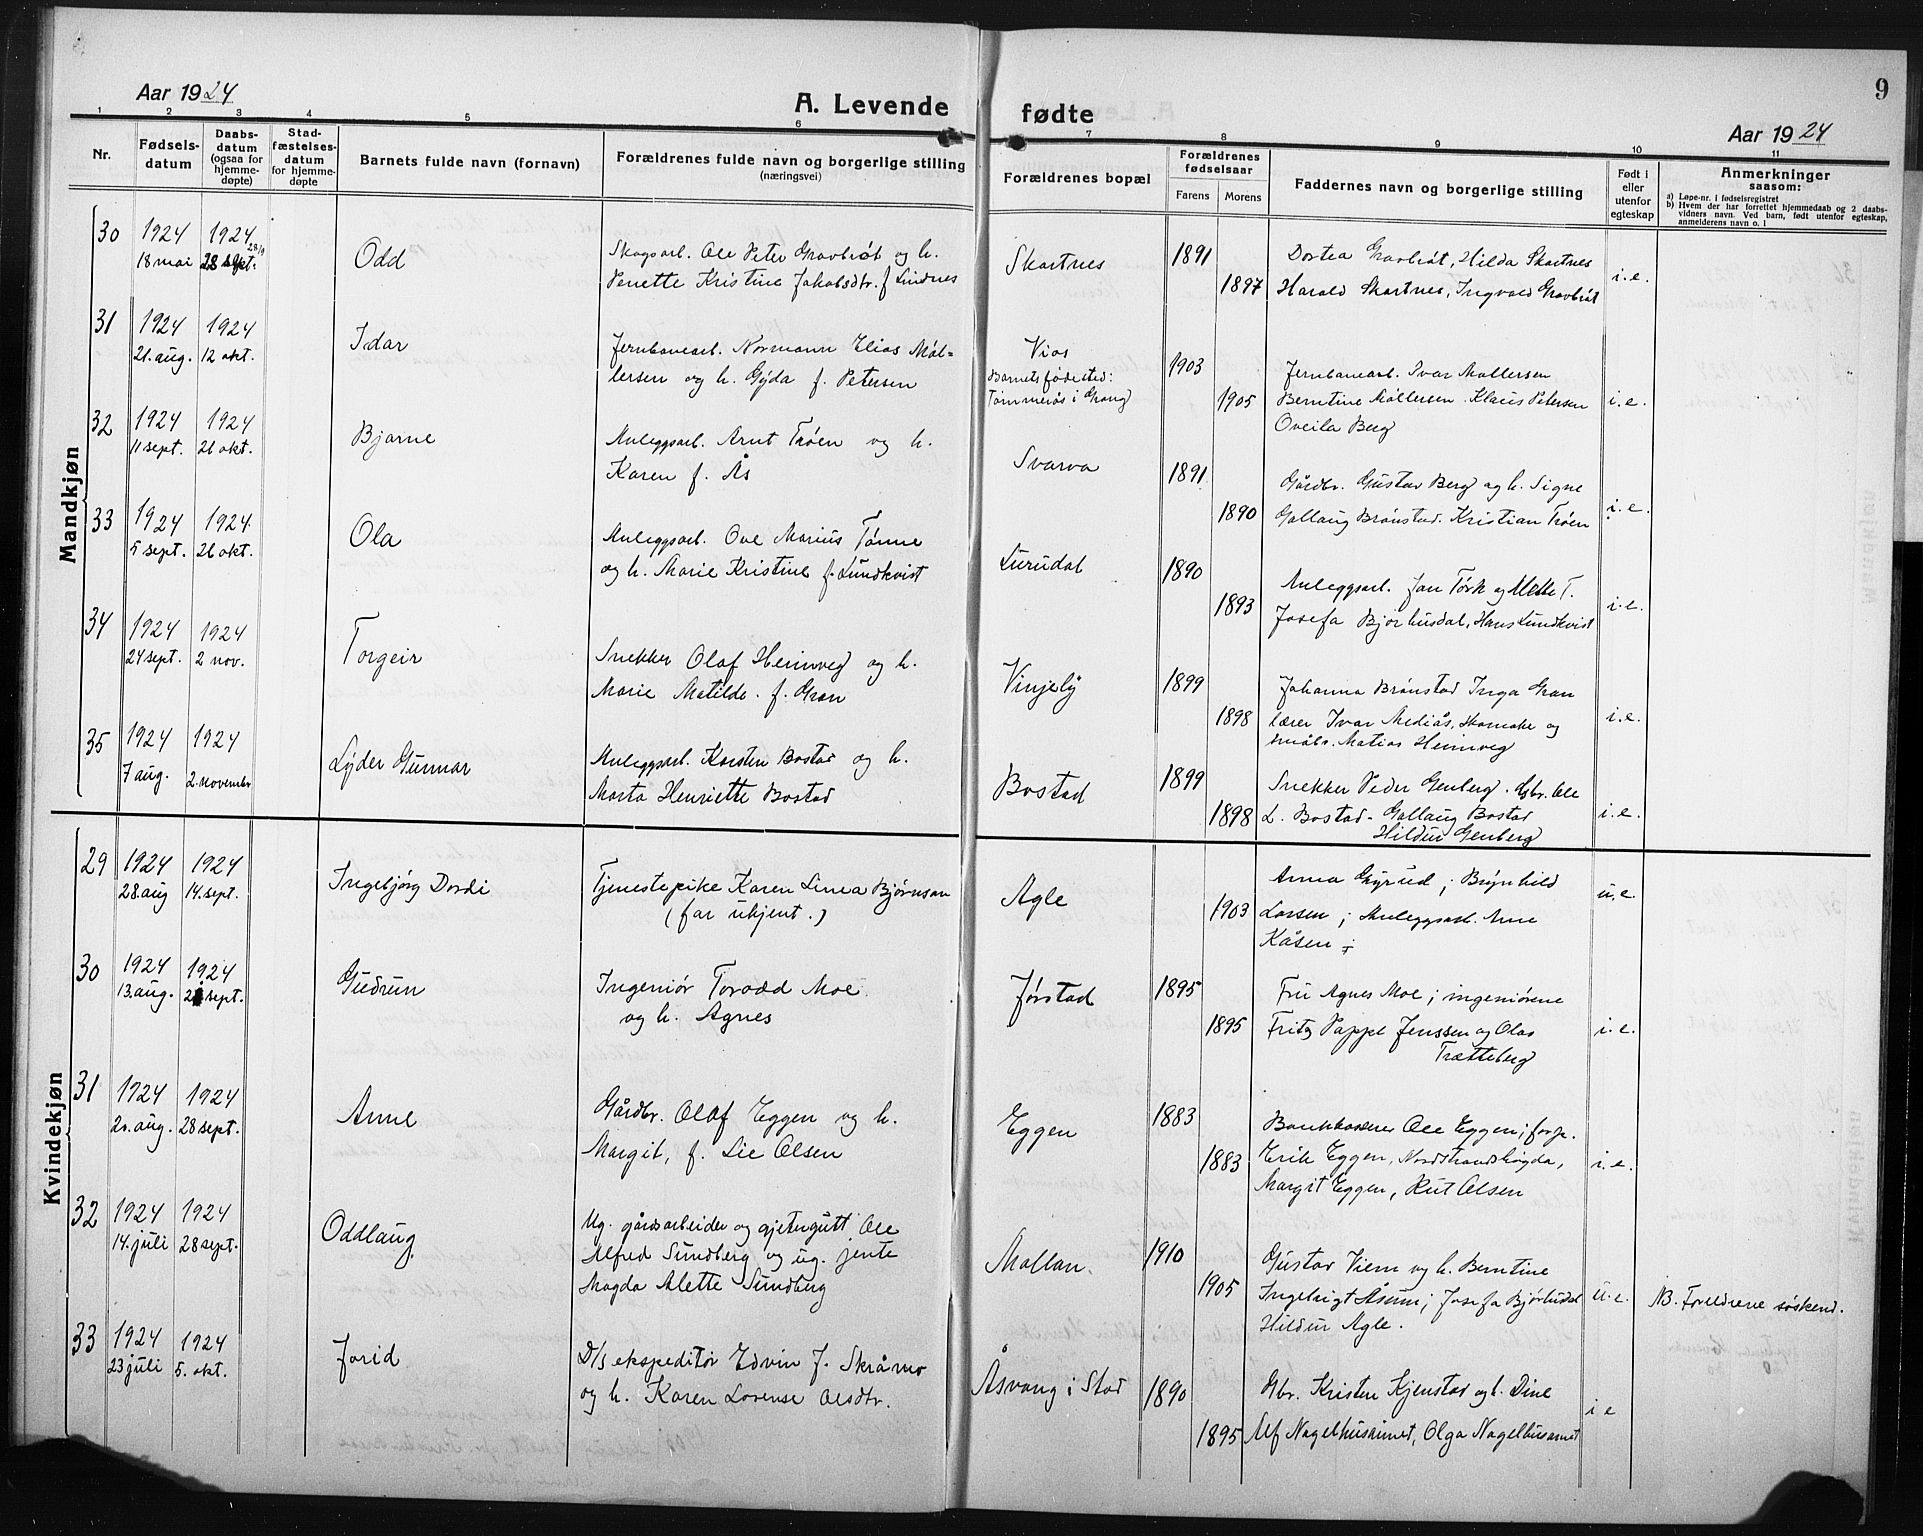 9
Aar 1924
A. Levende fødte
Aar 1924
1 2 3 4 5 6 7 8 9 10 11
Nr.
Fødsels-
datum
Daabs-
datum
(ogsaa for
hjemme-
døpte)
Stad-
fæstelses-
datum
for hjemme-
døpte
Barnets fulde navn (fornavn)
Forældrenes fulde navn og borgerlige stilling
(næringsvei)
Forældrenes bopæl
Forældrenes
fødselsaar
Farens Morens
Faddernes navn og borgerlige stilling
Født i
eller
utenfor
egteskap
Anmerkninger
saasom:
a) Løpe-nr. i fødselsregistret
b) Hvem der har forrettet hjemmedaab og 2 daabs-
vidners navn. Ved barn, født utenfor egteskap,
anmelderens navn o. l
Mandkjøn
30 1924 1924 28/9
18 mai 28 sept.
Odd
Skogsarb. Ole Peter Gravbrøt og h.
Penette Kristine Jakobsdtr. f. Lindnes
Skartnes
1891
1897
Dortea Gravbrøt, Hilda Skartnes
Harald Skartnes, Ingvald Gravbrøt
i. e.
31 1924 1924
21. aug. 12 okt.
Idar
Jernbanearb. Normann Elias Møl-
lersen og h. Gyda f. Petersen
Vios
Barnets fødested:
Tømmerås i Grong
1903
1905
Jernbanearb. Ivar Møllersen
Berntine Møllersen. Klaus Petersen
Oveila Berg
i. e.
32 1924 1924
11 sept. 26 okt.
Bjarne
Anleggsarb. Arnt Trøen og h.
Karen f. Ås
Svarva
1891
1890
Gårdbr. Gustav Berg og h. Signe
Gallaug Brønstad. Kristian Trøen
i. e.
33 1924 1924
5 sept. 26 okt.
Ola
Anleggsarb. Ove Marius Tønne
og h. Marie Kristine f. Lundkvist
Lurudal
1890
1893
Anleggsarb. Jan Tørk og Mette T.
Josefa Bjørhusdal, Hans Lundkvist
i. e.
34 1924 1924
24 sept. 2 nov.
Torgeir
Snekker Olaf Heimveg og h.
Marie Matilde. f. Gran
Vinjely
1899
1898
Johanna Brønstad Inga Gran
lærer Ivar Mediås, skomake og
småbr. Matias Heimveg
i. e.
35 1924 1924
7 aug. 2. november
Lyder Gunnar
Anleggsarb. Karsten Bostad og h.
Marta Henriette Bostad
Bostad
1899
1898
Snekker Peder Genberg. Gbr. Ole
L. Bostad - Gallaug Bostad
Hildur Genberg
i. e.
Kvindekjøn
29 1924 1924
28. aug 14. sept.
Ingebjørg Dordi
Tjenestepike Karen Linea Bjørnsen
(far ukjent.)
Agle
1903
Anna Gyrud; Brynhild
Larsen; Anleggsarb. Arne
Kåsen;
u. e.
30 1924 1924
13. aug. 21 sept.
Gudrun
Ingeniør Torodd Moe
og h. Agnes
Jørstad
1895
1895
Fru Agnes Moe; ingeniørene
Fritz Pappe Jenssen og Olav
Trætteberg
i. e.
31 1924 1924
20. aug. 28 sept.
Anne
Gårdbr. Olaf Eggen og h.
Margit, f. Lie Olsen
Eggen
1883
1883
Bankkaserer Ole Eggen; forp.
Erik Eggen, Nordstrandshøgda,
Margit Eggen, Rut Olsen
i. e.
32 1924 1924
14. juli 28 sept.
Oddlaug
Ug. gårdsarbeider og gjetergutt Ole
Alfred Sundberg og ug. jente
Magda Alette Sundberg
Mollan.
1910
1905
Gustav Viem og h. Berntine
Ingebrigt Åsum; Josefa Bjørhusdal
Hildur Agle.
u. e.
NB. Foreldrene søskend.
33 1924 1924
23 juli 5. okt.
Jorid
D/s ekspeditør Edvin J. Skråmo
og h. Karen Lovense Olsdtr.
Åsvang i Stod
1890
1895
Gbr. Kristen Kjenstad og h. Dine
Alf Nagelhusaunet, Olga Nagelhusaunet
i e